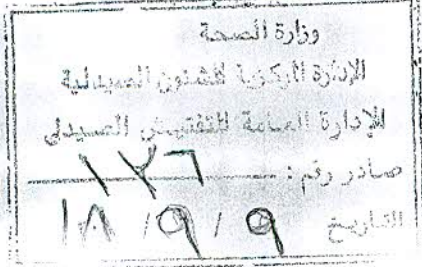 وزارة الصحة
الإدارة المركزية للشئون الصيدلية
الإدارة العامة للتفتيش الصيدلى
صادر رقم : ١٢٦
التاريخ ٩ / ٩ / ١٨